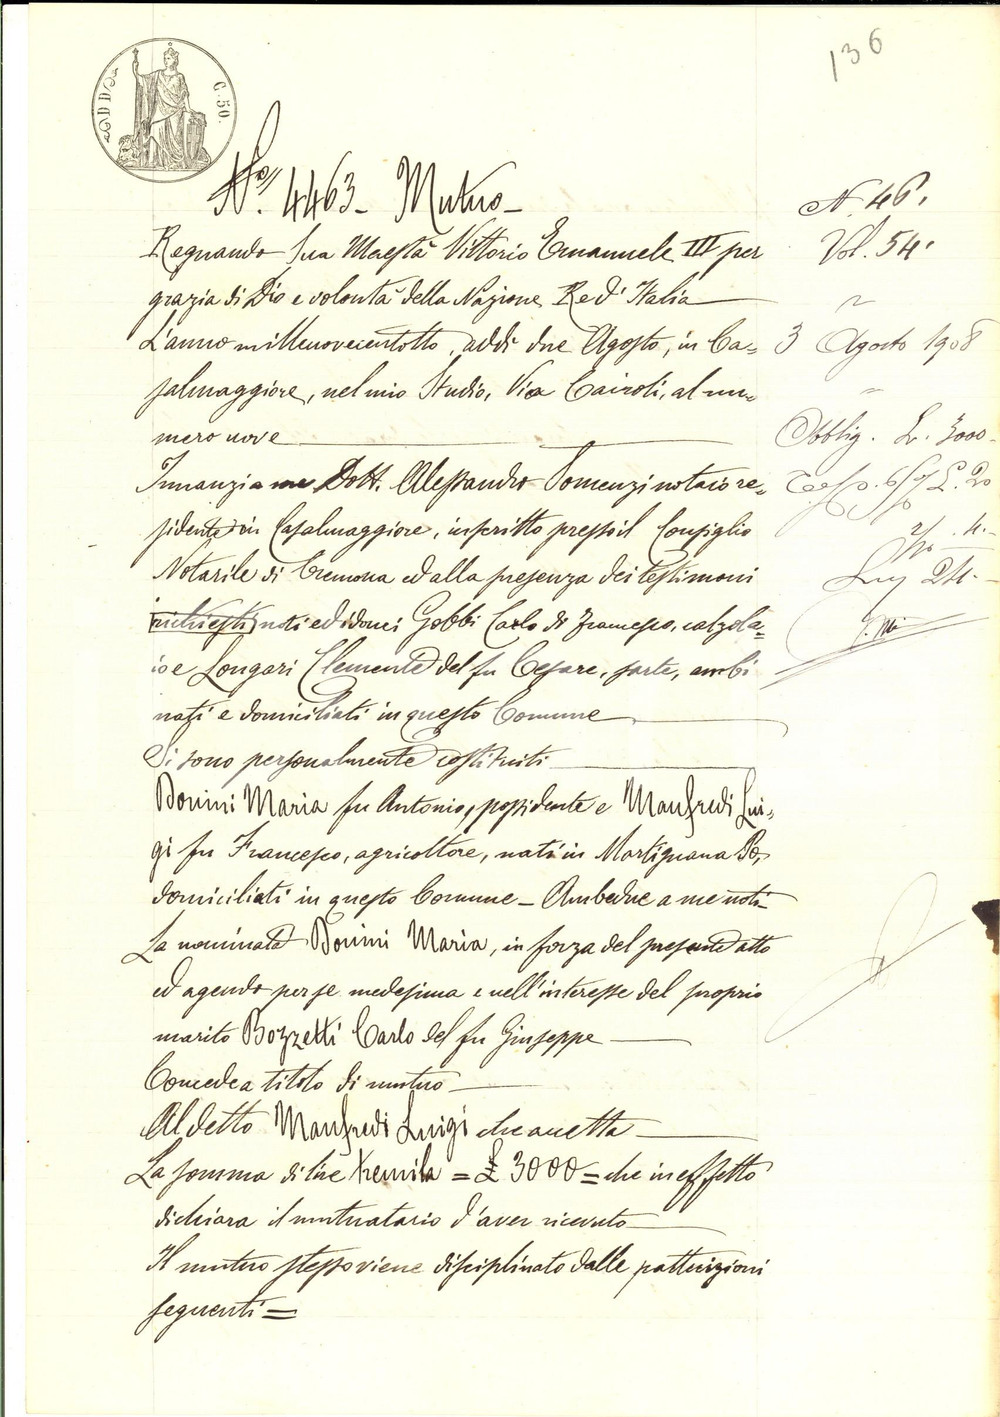 136
C. 50.
N.° 4463 - Mutuo -
Regnando Sua Maestà Vittorio Emanuele III per
grazia di Dio e volontà della Nazione Re d'Italia
L'anno millenovecentotto, addì due Agosto, in Ca=
salmaggiore, nel mio Studio, Via Cairoli, al nu=
mero nove
Innanzi a me Dott. Alessandro Tomenzi notaio re=
sidente in Casalmaggiore, inscritto presso il Consiglio
Notarile di Cremona ed alla presenza dei testimoni
richiesti noti ed idonei Gobbi Carlo di Francesco, calzola=
io e Longari Clemente del fu Cesare, sarte, ambi
nati e domiciliati in questo Comune
Si sono personalmente costituiti
Bonini Maria fu Antonio, possidente e Manfredi Lui=
gi fu Francesco, agricoltore, nati in Martignana Po,
domiciliati in questo Comune - Ambedue a me noti -
La nominata Bonini Maria, in forza del presente atto
ed agendo per se medesima e nell'interesse del proprio
marito Bozzetti Carlo del fu Giuseppe
Concede a titolo di mutuo
Al detto Manfredi Luigi che accetta
La somma di lire tremila = £ 3000 = che in effetto
dichiara il mutuatario d'aver ricevuto
Il mutuo stesso viene disciplinato dalle pattuizioni
seguenti =
N. 46.
Vol. 54.
3 Agosto 1908
Obblig. L. 3000 -
L. 20
4. -
24. -